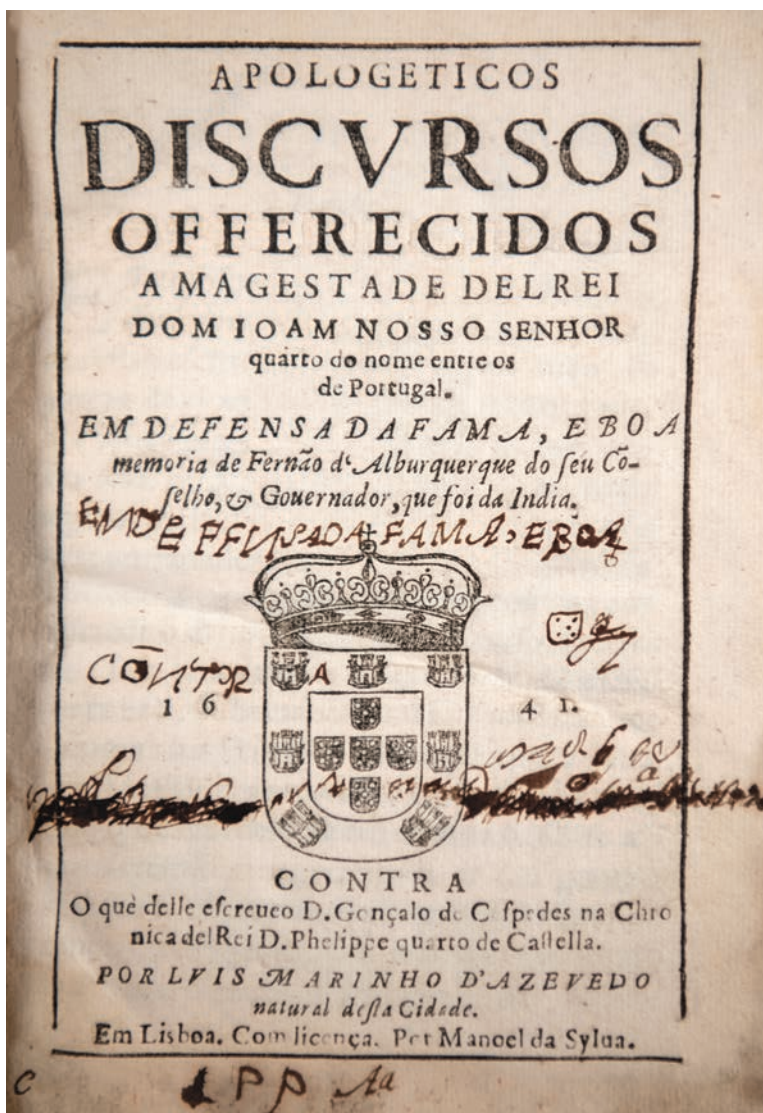 APOLOGETICOS
DISCVRSOS
OFFERECIDOS
A MAGESTADE DELREI
DOM IOAM NOSSO SENHOR
quarto do nome entre os
de Portugal.
EM DEFENSA DA FAMA, E BOA
memoria de Fernão d'Alburquerque do seu Cõ-
selho, & Gouernador, que foi da India.
EMDEFFENSADA FAMA, EBOA
CONTRA
16 41.
CONTRA
O que delle escreueo D. Gonçalo de Cespedes na Chro
nica del Rei D. Phelippe quarto de Castella.
POR LVIS MARINHO D'AZEVEDO
natural desta Cidade.
Em Lisboa. Com licença. Por Manoel da Sylua.
C PP Aa